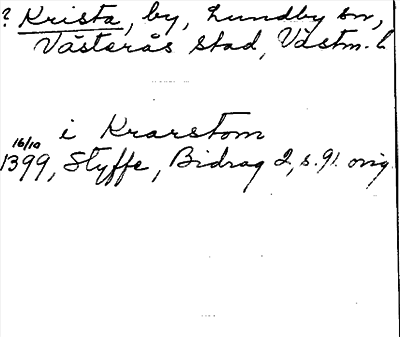 ? Krista, by, Lundby sn,
Västerås stad, Västm. l
i Krarstom
16/10
1399, Styffe, Bidrag 2, s. 91. orig.